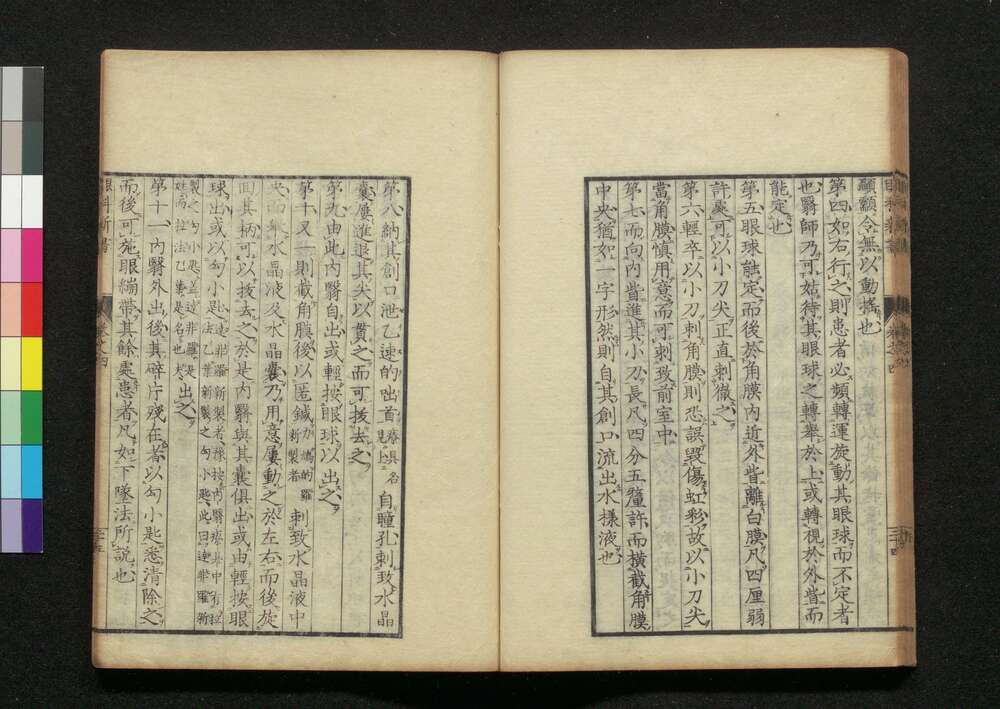 顳顬令無以動搖也
第四如右行之則患者必頻轉運旋動其眼球而不定者
也醫師乃可姑待其眼球之轉擧於上或轉視於外眥而
能定也
第五眼球能定而後於角膜內近外眥離白膜凡四厘弱
許處可以小刀尖正直刺徹之
第六輕卒以小刀刺角膜則恐誤毀傷虹彩故以小刀尖
當角膜愼用意而可刺致前室中
第七而向內眥進其小刀長凡四分五釐許而橫截角膜
中央猶如一字形然則自其創口流出水樣液也
第八納其創口泄乙速的咄首療具名見上自瞳孔刺致水晶
囊屢進退其尖以貫之而可拔去之
第九由此內翳自出或輕按眼球以出之
第十又一則截角膜後以匿鍼新製者刺致水晶液中
央而至水晶液及水晶囊乃用意屢動之於左右而後旋
囘其柄可以拔去之於是內翳與其囊俱出或由輕按眼
球出或以勾小匙出之
第十一內翳外出後其碎片殘在者以勾小匙悉淸除之
而後可施眼繃帶其餘處患者凡如下墜法所說也
眼科新書
卷之四